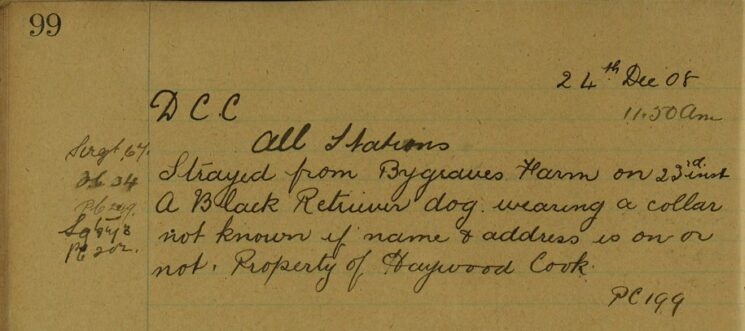 99
24th Dec 08
11.50 am
D C C
All Stations
Sergt 67.
Strayed from Bygraves Farm on 23rd inst
34
A Black Retriever dog wearing a collar
not known if name & address is on or
Pc 202.
not. Property of Haywood Cook.
PC 199